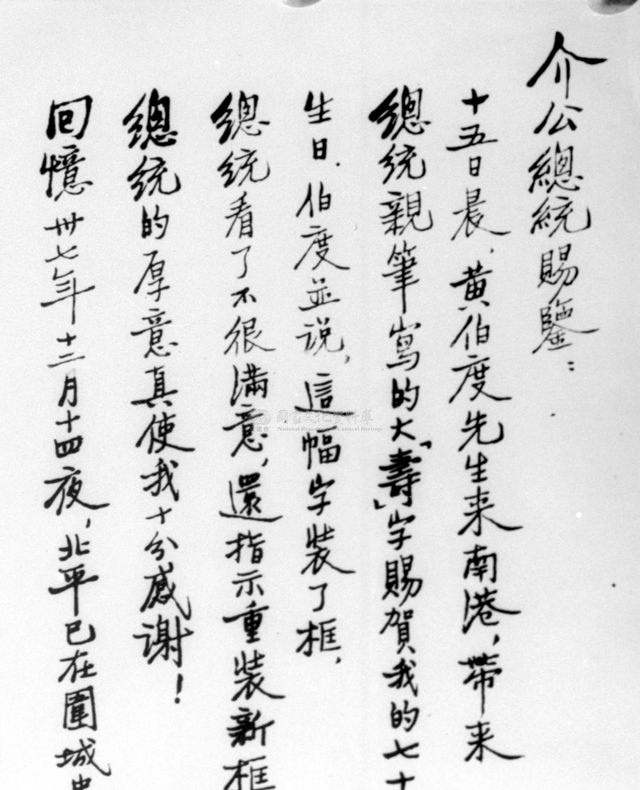 介公總統賜鑒：
十五日晨，黃伯度先生来南港，帶来
總統親筆寫的大「壽」字賜賀我的七十
生日．伯度並说，這幅字裝了框，
總統看了不很滿意，還指示重裝新框
總統的厚意真使我十分感谢！
回憶卅七年十二月十四夜，北平已在圍城
國家文化資料庫